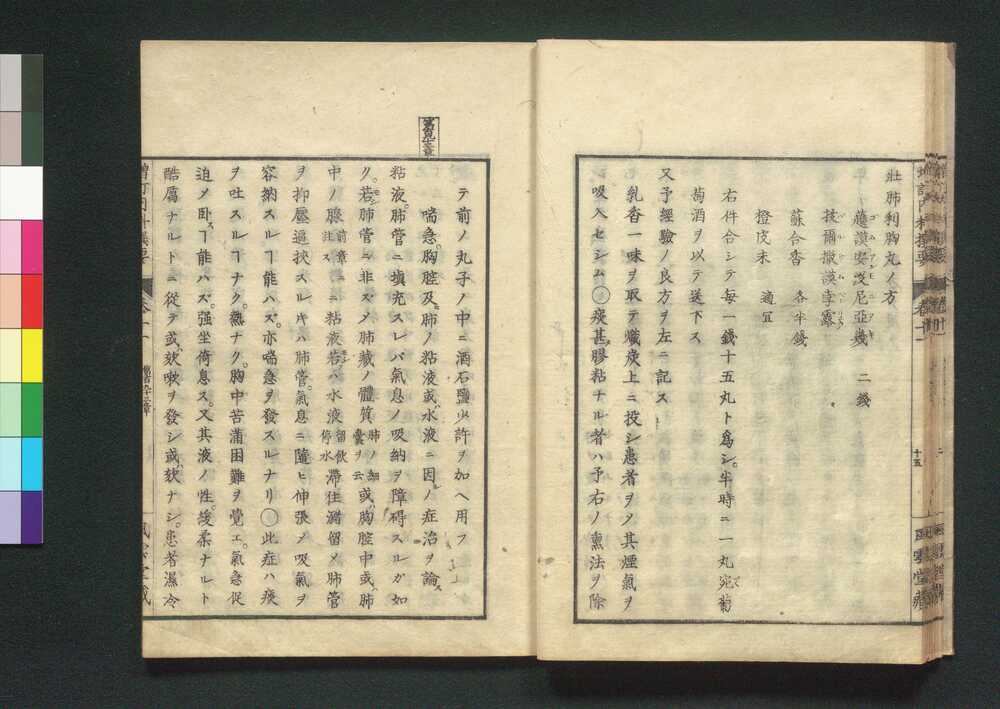 壮肺利胸丸ノ方
護謨安没尼亞幾 二錢
ゴム アンモニアキ
技爾撒謨孛露
蘇合香 各半錢
橙皮末 適宜
右件合シテ毎一錢十五丸ト爲シ。半時ニ一丸宛葡
萄酒ヲ以テ送下ス
又予經驗ノ良方ヲ左ニ記ス
乳香一味ヲ取テ熾炭上ニ投シ患者ヲシテ其煙氣ヲ
吸入セシム〇痰甚膠粘ナル者ハ予右ノ熏法ヲ除
十五
テ前ノ丸子ノ中ニ酒石鹽少許ヲ加ヘ用フ
喘急。胸腔及肺ノ粘液或水液ニ因ノ症治ヲ論ス
粘液。肺管ニ填充スレバ氣息ノ吸納ヲ障碍スルガ如
ク。若肺管ニ非ズシテ肺藏ノ體質肺ノ細囊ヲ云或胸腔中或肺
中ノ膜前章ニ註スニ粘液若ハ水液留飲停水滯住瀦留シテ肺管
ヲ抑壓逼挾スルキハ肺管。氣息ニ隨ヒ伸張シテ吸氣ヲ
容納スルヿ能ハズ。亦喘急ヲ發スルナリ〇此症ハ痰
ヲ吐スルヿナク。熱ナク。胸中苦滿困難ヲ覺エ。氣急促
迫シテ臥スヿ能ハズ。强坐倚息ス。又其液ノ性。緩柔ナルト
酷厲ナルトニ從テ或欬嗽ヲ發シ或欬ナシ。患者濕冷